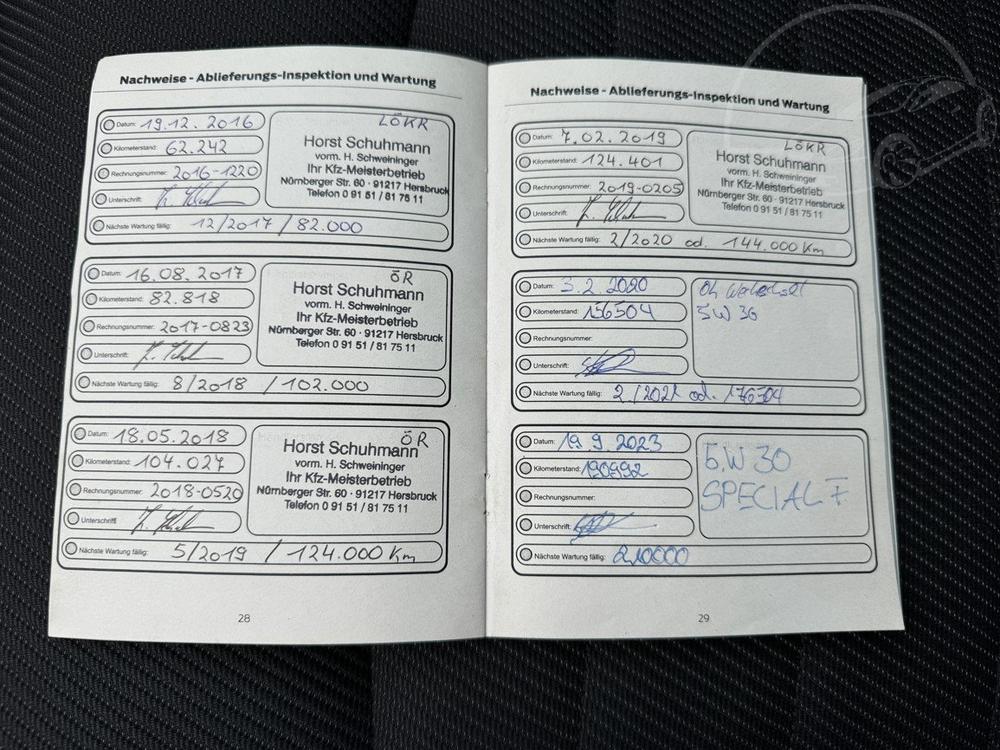 Nachweise - Ablieferungs-Inspektion und Wartung
Datum: 19.12.2016
Kilometerstand: 62.242
Rechnungsnummer: 2016-1220
Unterschrift:
Nächste Wartung fällig: 12/2017 / 82.000
LÖKR
Horst Schuhmann
vorm. H. Schweininger
Ihr Kfz-Meisterbetrieb
Nürnberger Str. 60 · 91217 Hersbruck
Telefon 0 91 51 / 81 75 11
Datum: 16.08.2017
Kilometerstand: 82.818
Rechnungsnummer: 2017-0823
Unterschrift:
Nächste Wartung fällig: 8/2018 / 102.000
ÖR
Horst Schuhmann
vorm. H. Schweininger
Ihr Kfz-Meisterbetrieb
Nürnberger Str. 60 · 91217 Hersbruck
Telefon 0 91 51 / 81 75 11
Datum: 18.05.2018
Kilometerstand: 104.027
Rechnungsnummer: 2018-0520
Unterschrift
Nächste Wartung fällig: 5/2019 / 124.000 Km
ÖR
Horst Schuhmann
vorm. H. Schweininger
Ihr Kfz-Meisterbetrieb
Nürnberger Str. 60 · 91217 Hersbruck
Telefon 0 91 51 / 81 75 11
28
Nachweise - Ablieferungs-Inspektion und Wartung
Datum: 7.02.2019
Kilometerstand: 124.401
Rechnungsnummer: 2019-0205
Unterschrift:
Nächste Wartung fällig: 2/2020 od. 144.000 Km
LÖKR
Horst Schuhmann
vorm. H. Schweininger
Ihr Kfz-Meisterbetrieb
Nürnberger Str. 60 · 91217 Hersbruck
Telefon 0 91 51 / 81 75 11
Datum: 3.2.2020
Kilometerstand: 156504
Rechnungsnummer:
Unterschrift:
Nächste Wartung fällig: 2/2021 od. 176504
5W30
Datum: 19.9.2023
Kilometerstand: 190992
Rechnungsnummer:
Unterschrift:
Nächste Wartung fällig: 210000
5W30
SPECIAL F
29